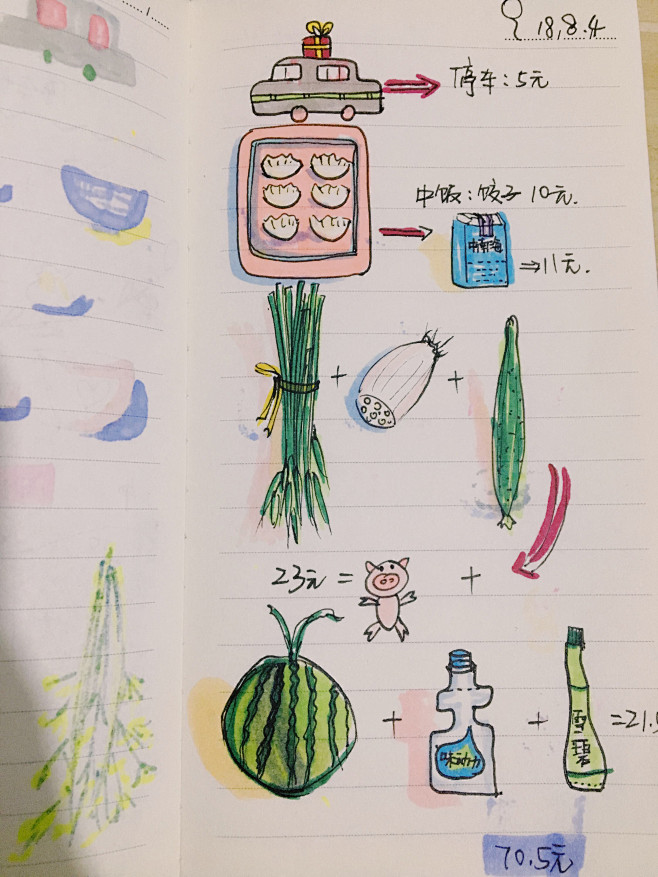 18.8.4
停车:5元
中饭:饺子 10元.
中南海
⇒11元.
+ +
23元 = +
+ + =21.5
味动力
雪碧
70.5元